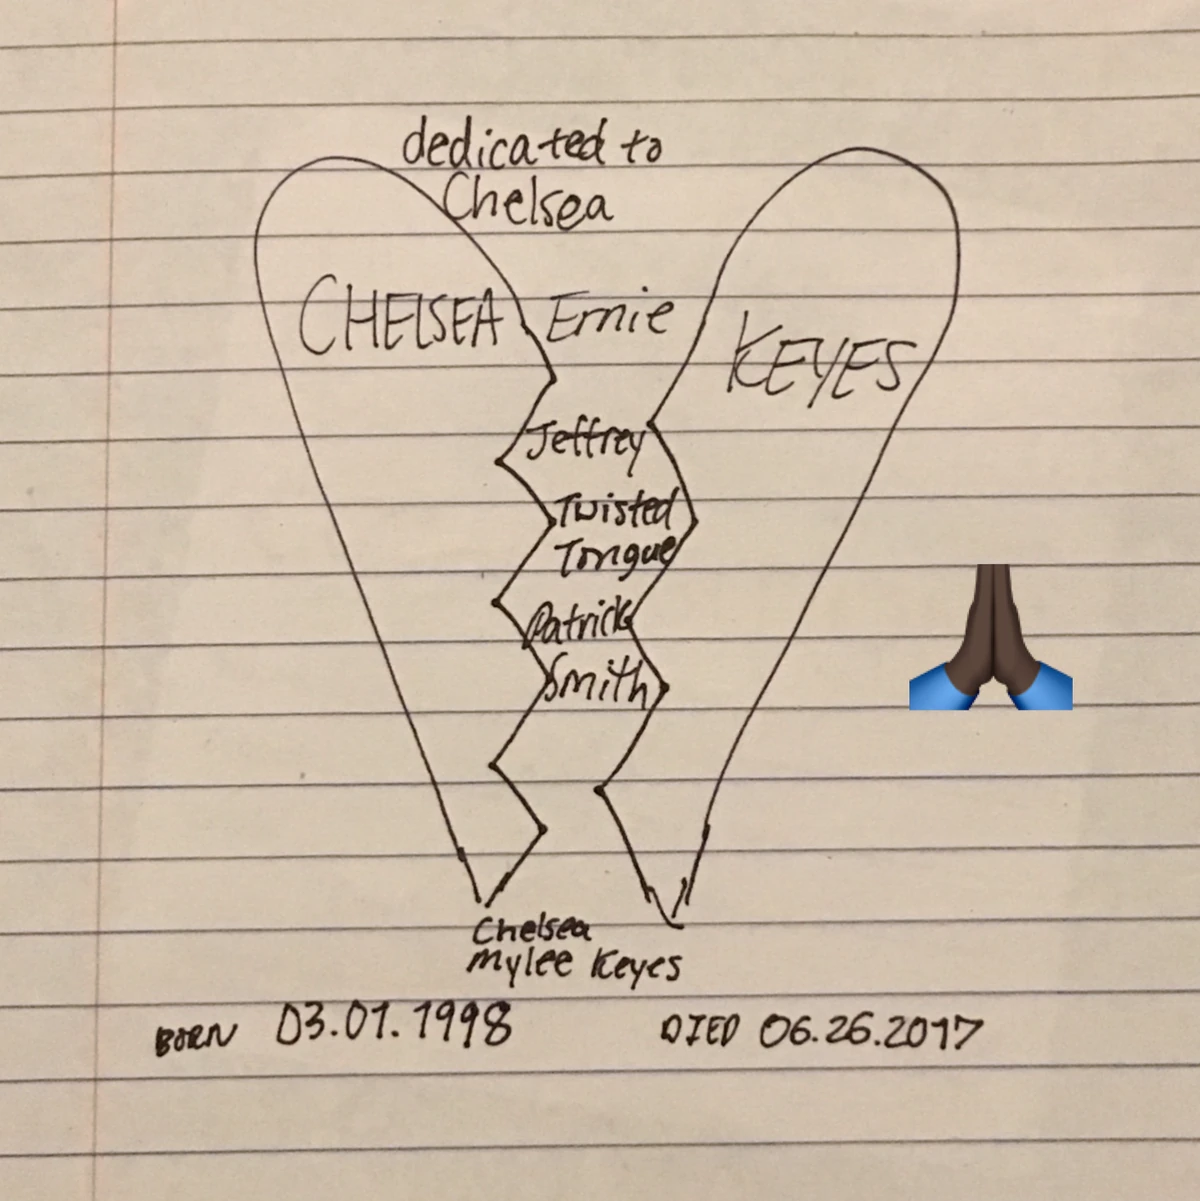 dedicated to
Chelsea
CHELSEA Ernie KEYES
Jeffrey
Twisted
Tongue
Patrick
Smith
Chelsea
Mylee Keyes
BORN 03.01.1998 DIED 06.26.2017